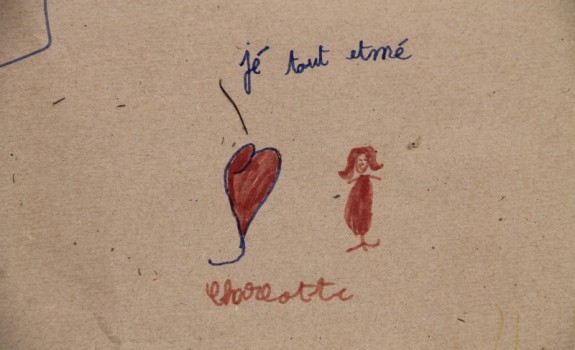 jé tout etmé
Charlotte